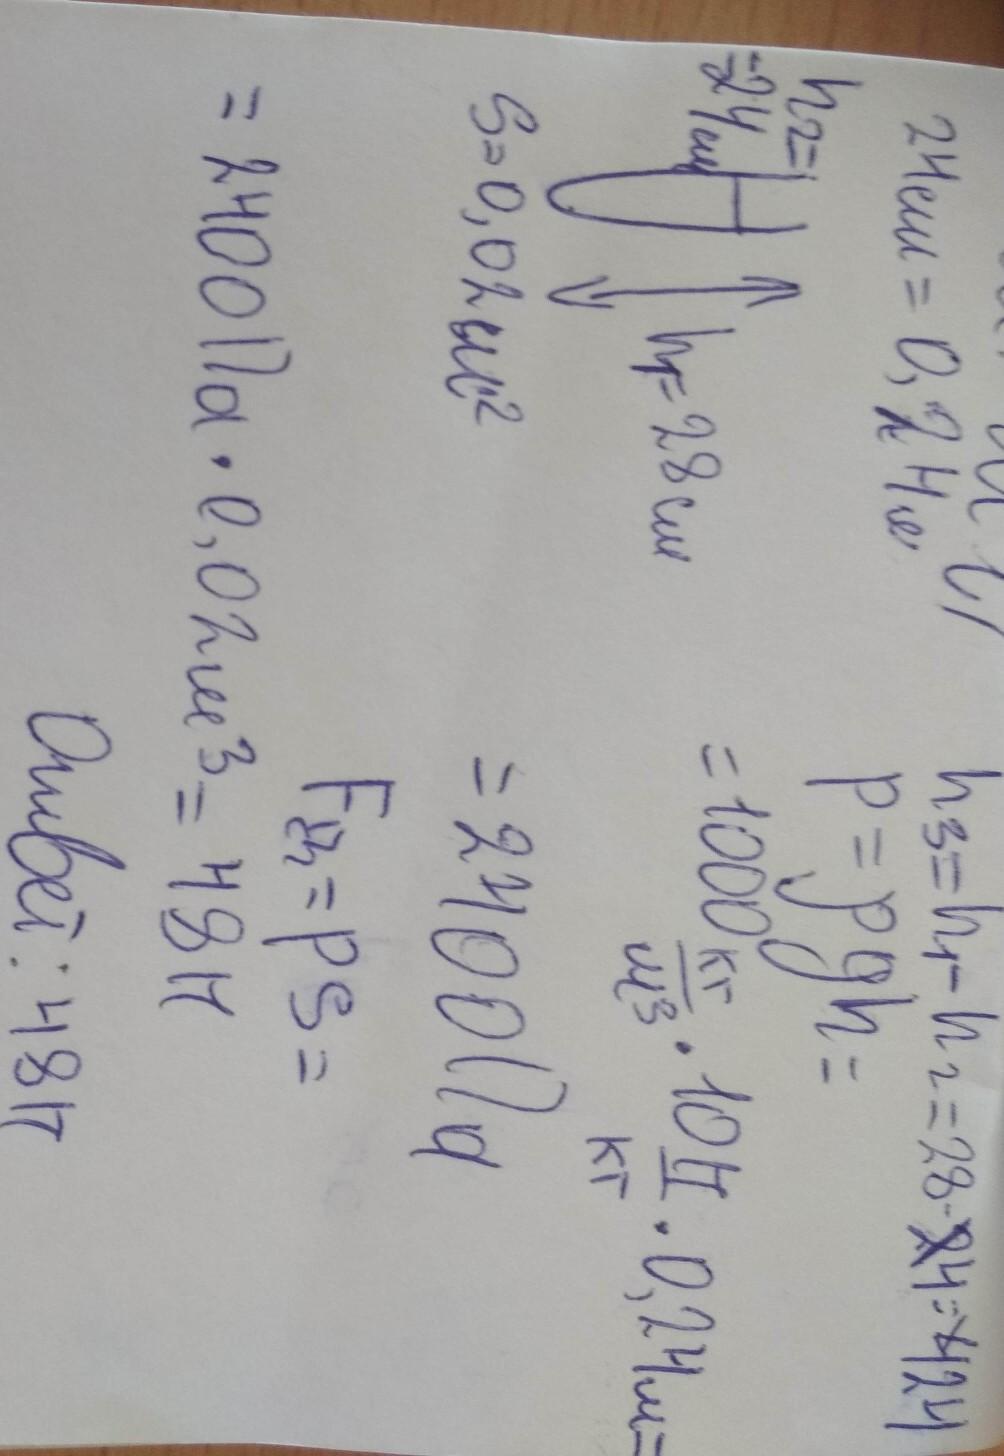 24см = 0,24м
h₂=
=24см
h₁=28см
S=0,02м²
h₃=h₁-h₂=28-4=24
p=ρgh=
=1000 кг/м³ · 10 Н/кг · 0,24м=
=2400Па
F=pS=
=2400Па · 0,02м³=48Н
Ответ: 48Н